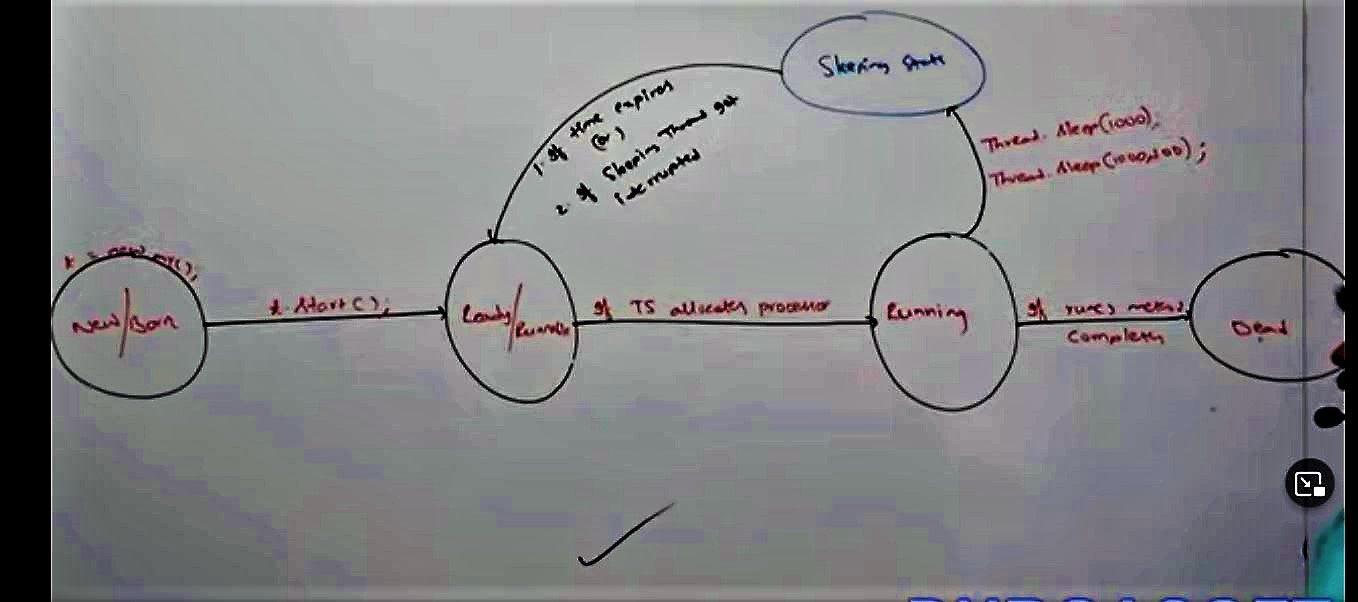 Sleeping State
1. If time expires
(or)
2. If Sleeping Thread got
interrupted
Thread.sleep(1000);
Thread.sleep(1000,100);
t = new
New/Born
t.start();
Ready/Runnable
If TS allocates processor
Running
If run() method
Completes
Dead